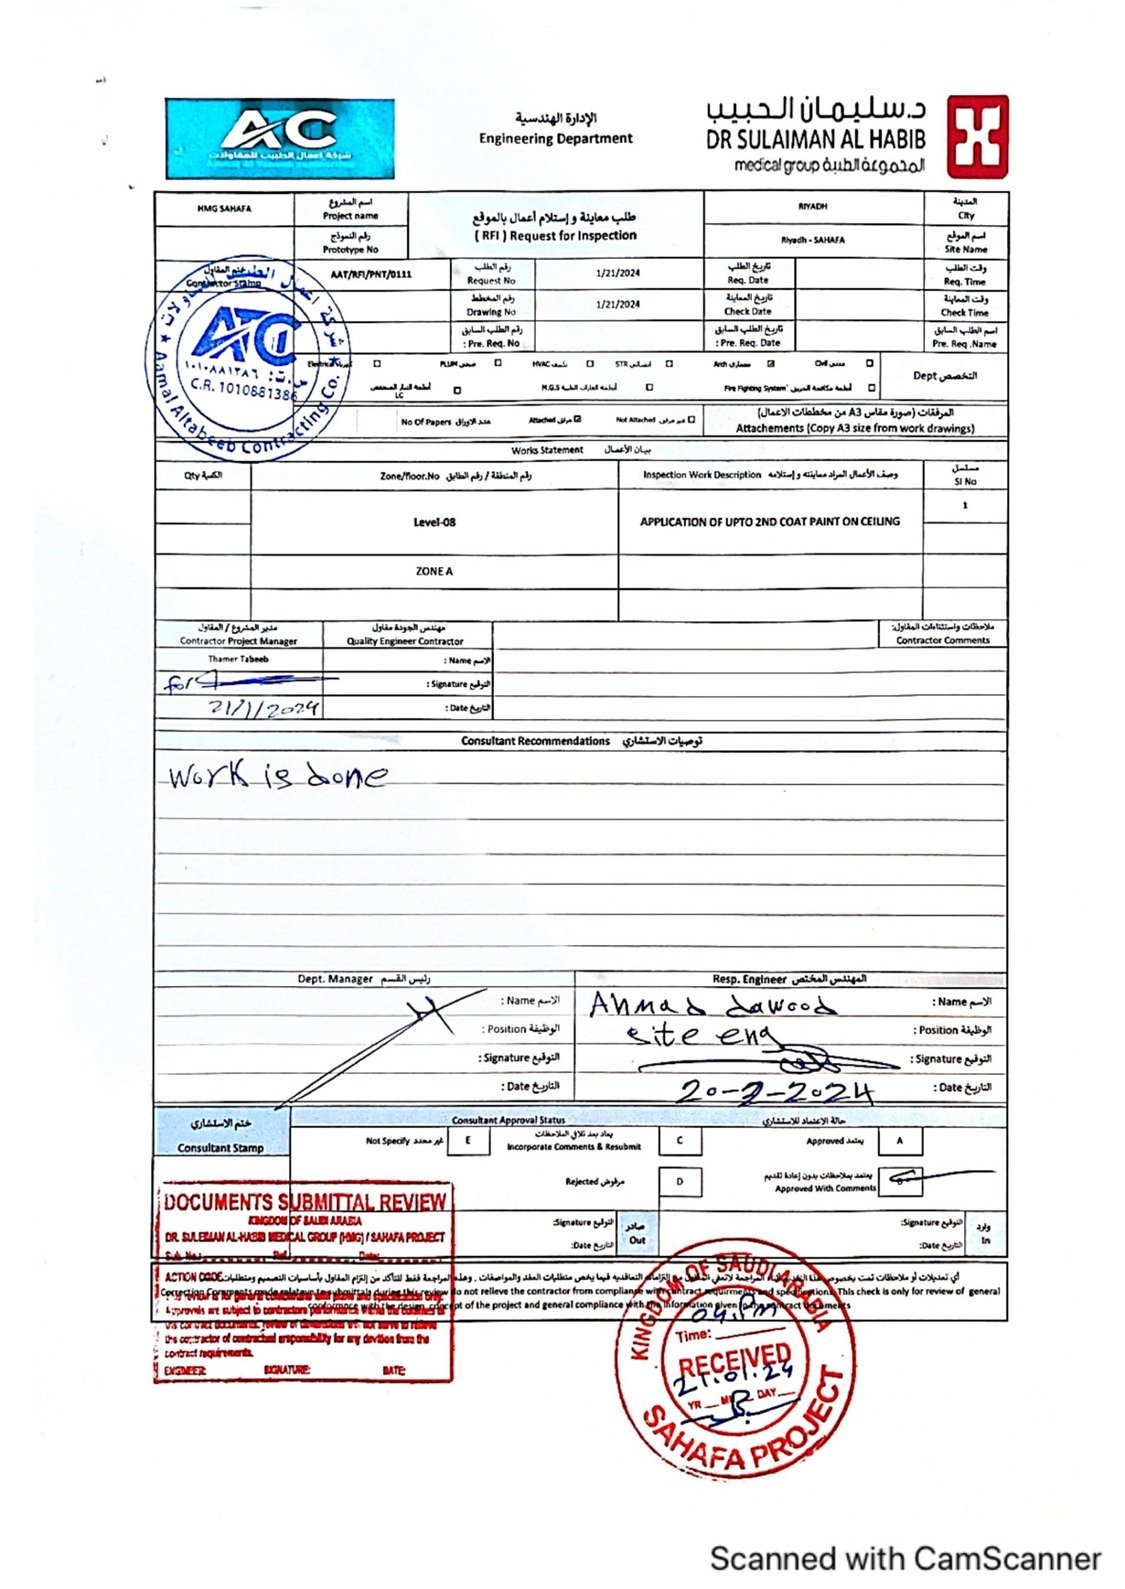 AC
شركة اعمال الطبيب للمقاولات
الإدارة الهندسية
Engineering Department
د.سليمان الحبيب
DR SULAIMAN AL HABIB
المجموعة الطبية medical group
HMG SAHAFA
اسم المشروع
Project name
رقم النموذج
Prototype No
طلب معاينة و إستلام أعمال بالموقع
( RFI ) Request for Inspection
RIYADH
المدينة
City
Riyadh - SAHAFA
اسم الموقع
Site Name
ختم المقاول
Contractor Stamp
AAT/RFI/PNT/0111
رقم الطلب
Request No
1/21/2024
تاريخ الطلب
Req. Date
وقت الطلب
Req. Time
رقم المخطط
Drawing No
1/21/2024
تاريخ المعاينة
Check Date
وقت المعاينة
Check Time
رقم الطلب السابق
: Pre. Req. No
تاريخ الطلب السابق
: Pre. Req. Date
اسم الطلب السابق
Pre. Req .Name
شركة اعمال الطبيب للمقاولات
ATC
س.ت: ١٠١٠٨٨١٣٨٦
C.R. 1010881386
Aamal Altabeeb Contracting Co.
Electrical كهرباء
PLUM صحي
HVAC تكييف
STR انشائي
Arch معماري
Civil مدني
LC أنظمة التيار المنخفض
M.G.S أنظمة الغازات الطبية
Fire Fighting System أنظمة مكافحة الحريق
Dept التخصص
No Of Papers عدد الاوراق
Attached مرفق
Not Attached غير مرفق
المرفقات (صورة مقاس A3 من مخططات الاعمال)
Attachements (Copy A3 size from work drawings)
Works Statement بيان الأعمال
Qty الكمية
Zone/floor.No رقم المنطقة / رقم الطابق
Inspection Work Description وصف الأعمال المراد معاينته و إستلامه
مسلسل
SI No
1
Level-08
APPLICATION OF UPTO 2ND COAT PAINT ON CEILING
ZONE A
مدير المشروع / المقاول
Contractor Project Manager
مهندس الجودة مقاول
Quality Engineer Contractor
ملاحظات واستثناءات المقاول:
Contractor Comments
Thamer Tabeeb
: Name الاسم
for
: Signature التوقيع
21/1/2024
: Date التاريخ
Consultant Recommendations توصيات الاستشاري
Work is done
Dept. Manager رئيس القسم
Resp. Engineer المهندس المختص
: Name الاسم
Ahmad dawood
: Name الاسم
: Position الوظيفة
site eng
: Position الوظيفة
: Signature التوقيع
: Signature التوقيع
: Date التاريخ
20-2-2024
: Date التاريخ
ختم الاستشاري
Consultant Stamp
Consultant Approval Status
حالة الاعتماد للاستشاري
Not Specify غير محدد
E
يعاد بعد تلافي الملاحظات
Incorporate Comments & Resubmit
C
Approved يعتمد
A
Rejected مرفوض
D
يعتمد بملاحظات بدون إعادة تقديم
Approved With Comments
:Signature التوقيع
:Date التاريخ
صادر
Out
:Signature التوقيع
:Date التاريخ
وارد
In
DOCUMENTS SUBMITTAL REVIEW
KINGDOM OF SAUDI ARABIA
DR. SULEIMAN AL-HABIB MEDICAL GROUP (HMG) / SAHAFA PROJECT
Sub. No.: Ref. Date:
ACTION CODE
Correction Comments made relative to submittals during this review do not relieve the contractor from compliance with contract requirments and specifications. This check is only for review of general
conformance with the design concept of the project and general compliance with the information given in the contract documents
Approvals are subject to contractors performance
the contractor of contractual responsibility for any devities from the
contract requirements.
ENGINEER: SIGNATURE: DATE:
KINGDOM OF SAUDI ARABIA
04.PM
Time:
RECEIVED
21.01.24
YR DAY
SAHAFA PROJECT
Scanned with CamScanner